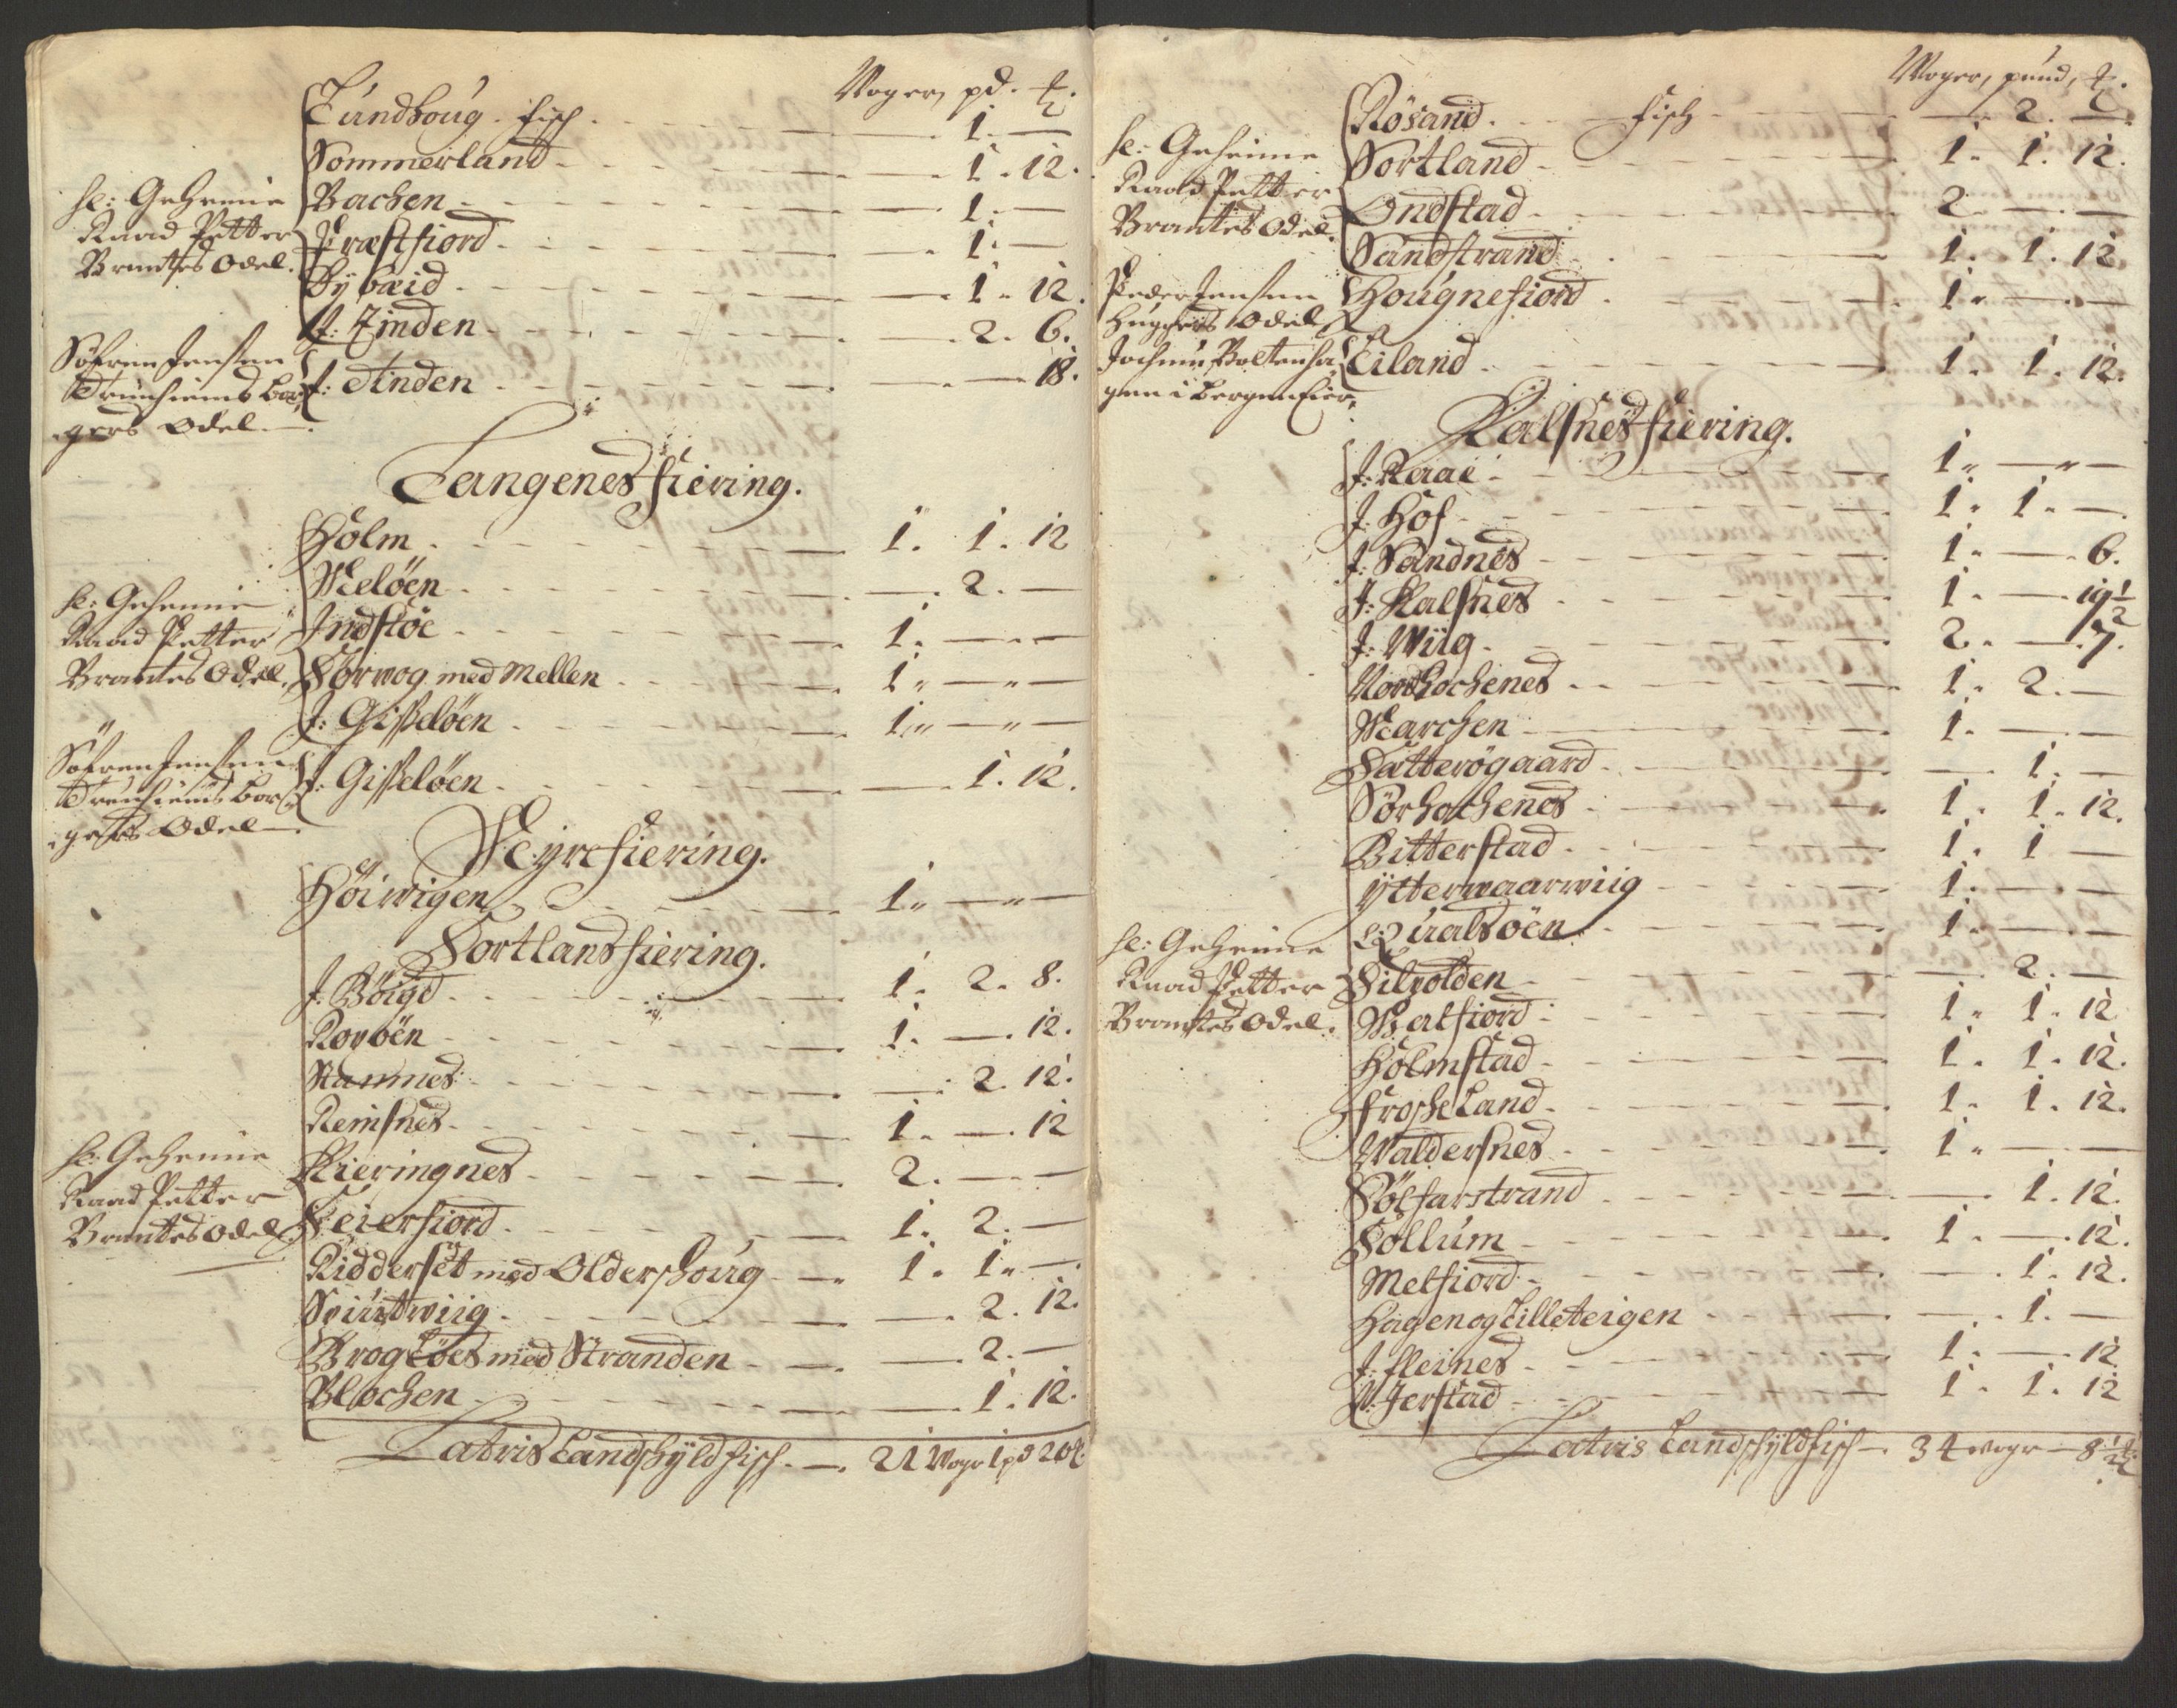 Woger, pd. ℔.
Lundhoug. fisk. — 1. —
Sommerland — 1. 12.
Bachen — 1. —
Præstfiord — 1. —
Dybæid — 1. 12.
J: Finden — 2. 6.
J: Anden — 18.
hr: Geheime
Raad Petter
Brantes Odel.
Söfren Jensen
Trunhiems bor¬
gers Odel —
Langenes fiering.
Holm — 1. 1. 12
Meløen — 2. —
Indstøe — 1. — —
Sørwog med Mellen — 1. — —
J: Gisseløen — 1. — —
J: Gisseløen — 1. 12.
hr: Geheime
Raad Petter
Brantes Odel.
Söfren Jensen
Trunhiems bor¬
gers Odel —
Meyre fiering.
Höiwigen — 1. — —
Sortlands fiering.
J: Böigd — 1. 2. 8.
Roröen — 1. — 12.
Stamnes — 2. 12.
Remsnes — 1. — 12
Kieringnes — 2. — —
Feierfiord — 1. 2. —
Ridderset med Olderschoug — 1. 1. —
Spiurtwiig — 2. 12.
Brogløes med Stranden — 2. —
Blochen — 1. 12.
hr: Geheime
Raad Petter
Brantes Odel.
Latris Landschyld fisk. — 21 Wogr 1 pd 20 ℔.
Woger, pund, ℔.
Røsand. fisk — 2. —
Sortland — 1. 1. 12.
Ondstad — 2. — —
Sandstrand — 1. 1. 12
Hougnefiord — 1. — —
Eiland — 1. 1. 12.
hr: Geheime
Raad Petter
Brantes Odel.
Peder Jensen
Huggers Odel
Jochum Boltenha
gen i bergen Eier.
Kalsnes fiering.
J: Raae — 1. — —
J: Hof — 1. 1. —
J: Sandnes — 1. — 6.
J: Kalsnes — 1. — 19 1/2
J: Wiig — 2. — 7.
Nordhochenes — 1. 2. —
Marchen — 1. — —
Sætterøgaard — 1. —
Sørhochenes — 1. 1. 12.
Bitterstad — 1. 1 —
Ytterwaarwiig — 1. — —
Qualsöen — 1. — —
Filpolden — 2. —
Matfiord — 1. 1. 12
Holmstad — 1. 1. 12.
Froskeland — 1. 1. 12.
Waldersnes — 1. — —
Sølfarstrand — 1. 12.
Sollum — 1. — 12.
Melfiord — 1. 12.
Hagen og Lilleteigen — 1. —
J: Fleines — 1. — 12
W: Jerstad — 1. 1. 12
hr: Geheime
Raad Petter
Brantes Odel.
Latris Landschyld fisk — 34 wogr — 8 1/2 ℔